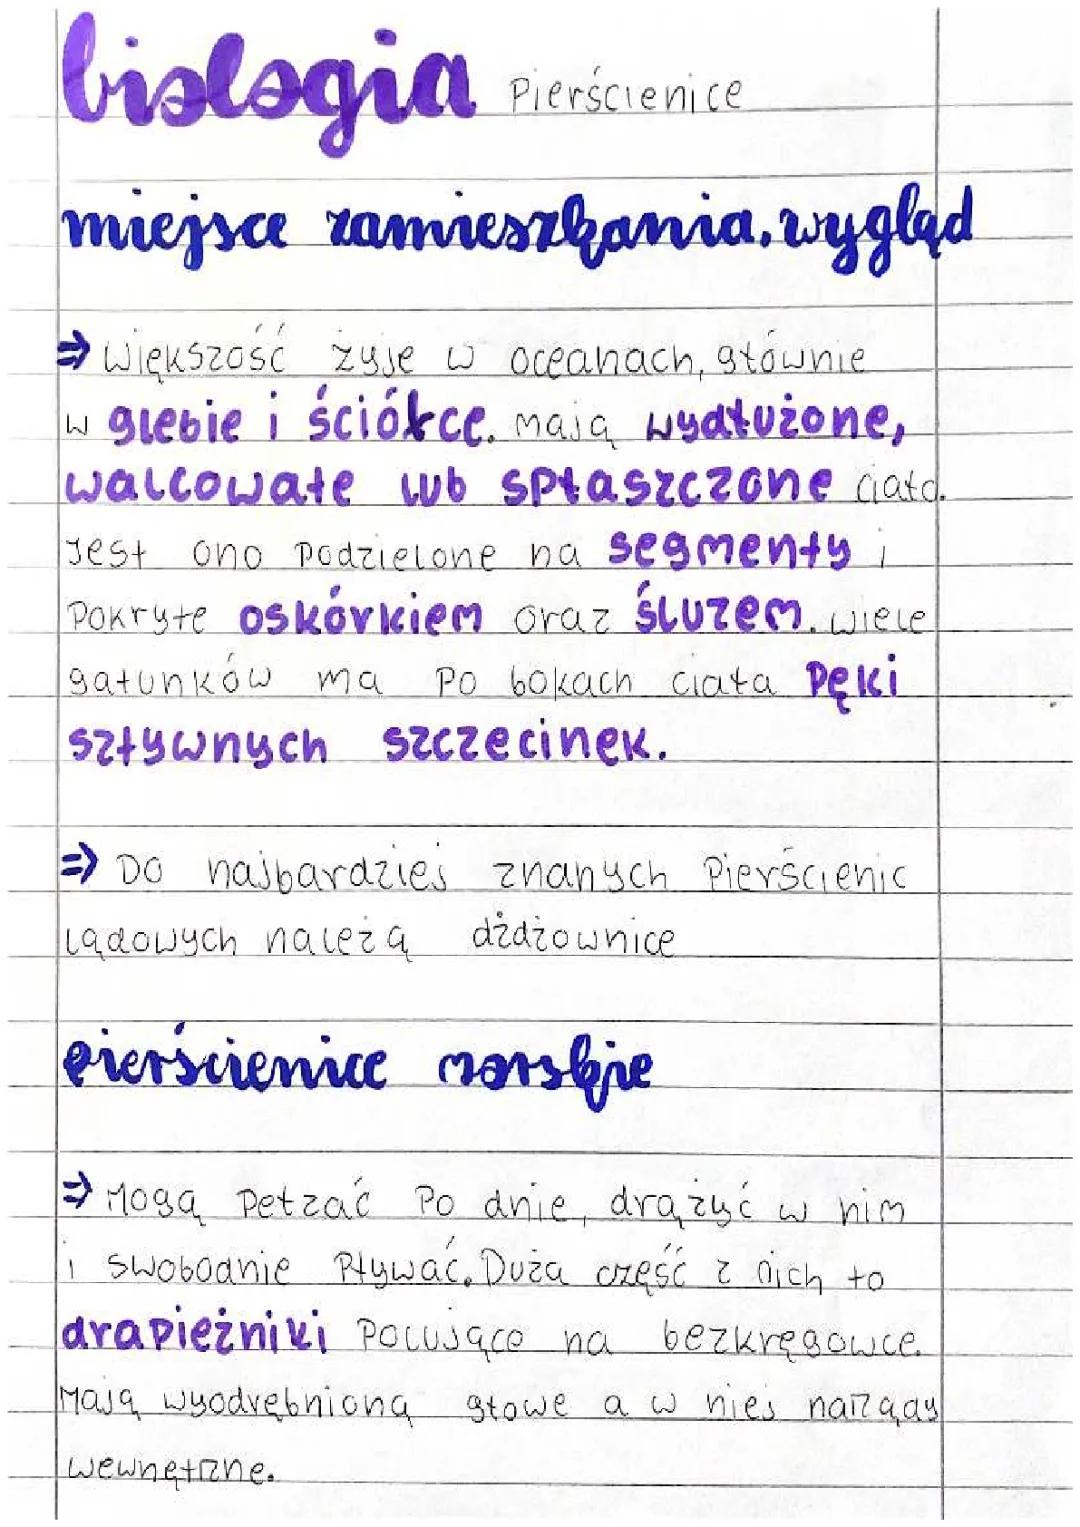 biologia Pierścienice
miejsce zamieszkania, wygląd
⇒ Większość żyje w oceanach, głównie
w glebie i ściółce. mają wydłużone,
walcowate lub spłaszczone ciało.
Jest ono podzielone na segmenty i
pokryte oskórkiem oraz śluzem. wiele
gatunków ma po bokach ciała pęki
sztywnych szczecinek.
⇒ Do najbardziej znanych Pierścienic
lądowych należą dżdżownice
pierścienice morskie
⇒ Mogą pełzać po dnie, drążyć w nim
i swobodnie pływać. Duża część z nich to
drapieżniki polujące na bezkręgowce.
Mają wyodrębnioną głowe a w niej narządy
wewnętrzne.